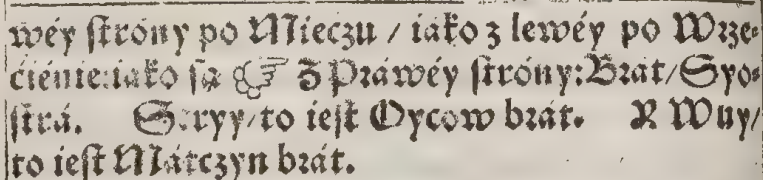 wéy ſtróny po Mieczu / iáko z lewéy po Wrze-
ćienie: iáko ſą ☞ Z Práwéy ſtróny: Brát / Syo-
ſtrá. Stryy / to ieſt Oycow brát. Wuy /
to ieſt Mátczyn brát.